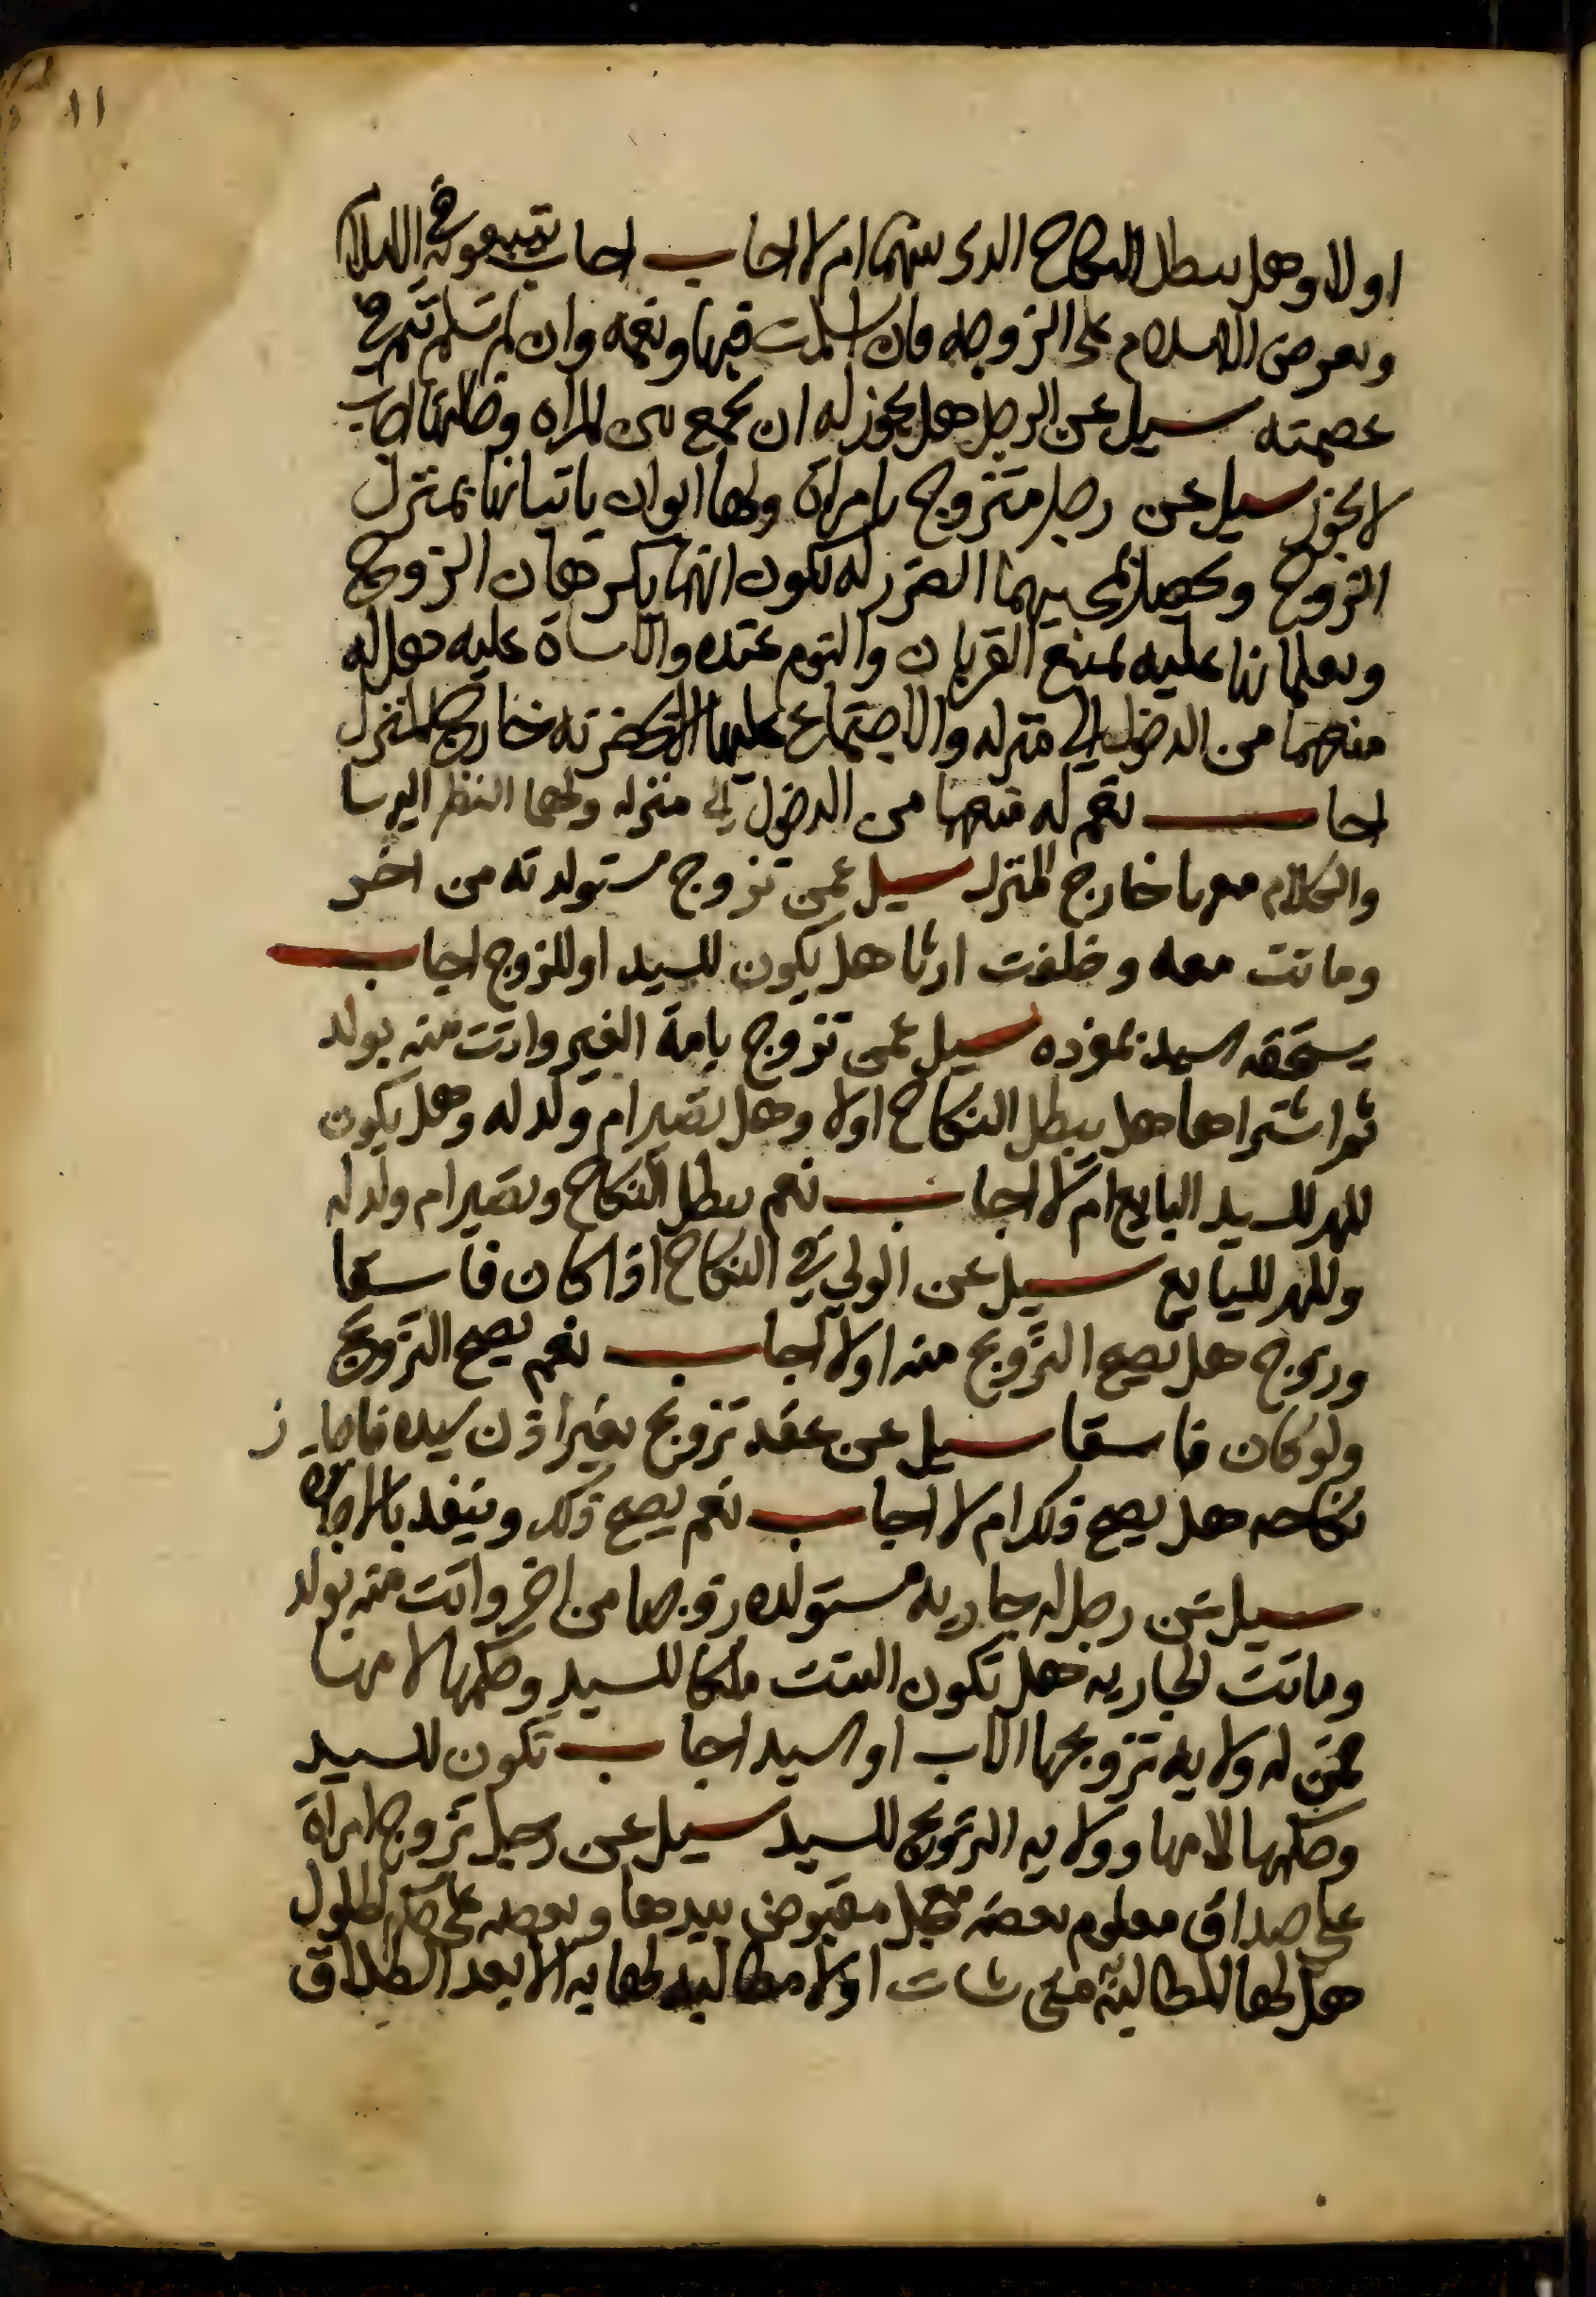 ١١
او لا وهل يبطل النكاح الذى بينهما ام لا اجاب اجاب يتبعونه في الاسلام
ويعرض الاسلام على الزوجه فان اسلمت فبها ونعمه وان لم تسلم تتم في
عصمته سيل عن الرجل هل يجوز له ان يجمع بين المراه وخالتها اجاب
لا يجوز سيل عن رجل متزوج بامراة ولها ابوان ياتيانها بمنزل
الزوج ويحصل بمجيهما الضرر له لكون انهما يكرهان الزوج
ويعلمانها عليه بمنع القربان والنوم عنده والاساة عليه هل له
منعهما من الدخول الي منزله والاجتماع عليها الا بحضرته خارج المنزل
اجاب نعم له منعهما من الدخول الي منزله ولهما النظر اليها
والكلام معها خارج المنزل سيل عمن تزوج مستولدته من اخر
وماتت معه وخلفت ارثا هل يكون للسيد او للزوج اجاب
يستحقه السيد بمفرده سيل عمن تزوج بامة الغير واتت منه بولد
ثم اشتراها هل يبطل النكاح اولا وهل تصير ام ولد له وهل يكون
المهر للسيد البايع ام لا اجاب نعم يبطل النكاح وتصير ام ولد له
والمهر للبايع سيل عن الولي في النكاح اذا كان فاسقا
وزوج هل يصح التزويج منه اولا اجاب نعم يصح التزويج
ولو كان فاسقا سيل عن عقد تزوج بغير اذن سيده فاجاز
نكاحه هل يصح ذلك ام لا اجاب نعم يصح ذلك وينفد بالاجازه
سيل عن رجل له جاريه مستولده زوجها من اخر واتت منه بولد
وماتت الجاريه فهل تكون البنت ملكا للسيد وحكمها لامها
فمن له ولايه تزويجها الاب او السيد اجاب تكون للسيد
وحكمها لامها وولايه التزويج للسيد سيل عن رجل تزوج امراة
علي صداق معلوم بعضه معجل مقبوض بيدها وبعضه علي حكم الحلول
هل لها المطالبة متى شات اولا مطالبه لها به الا بعد الطلاق